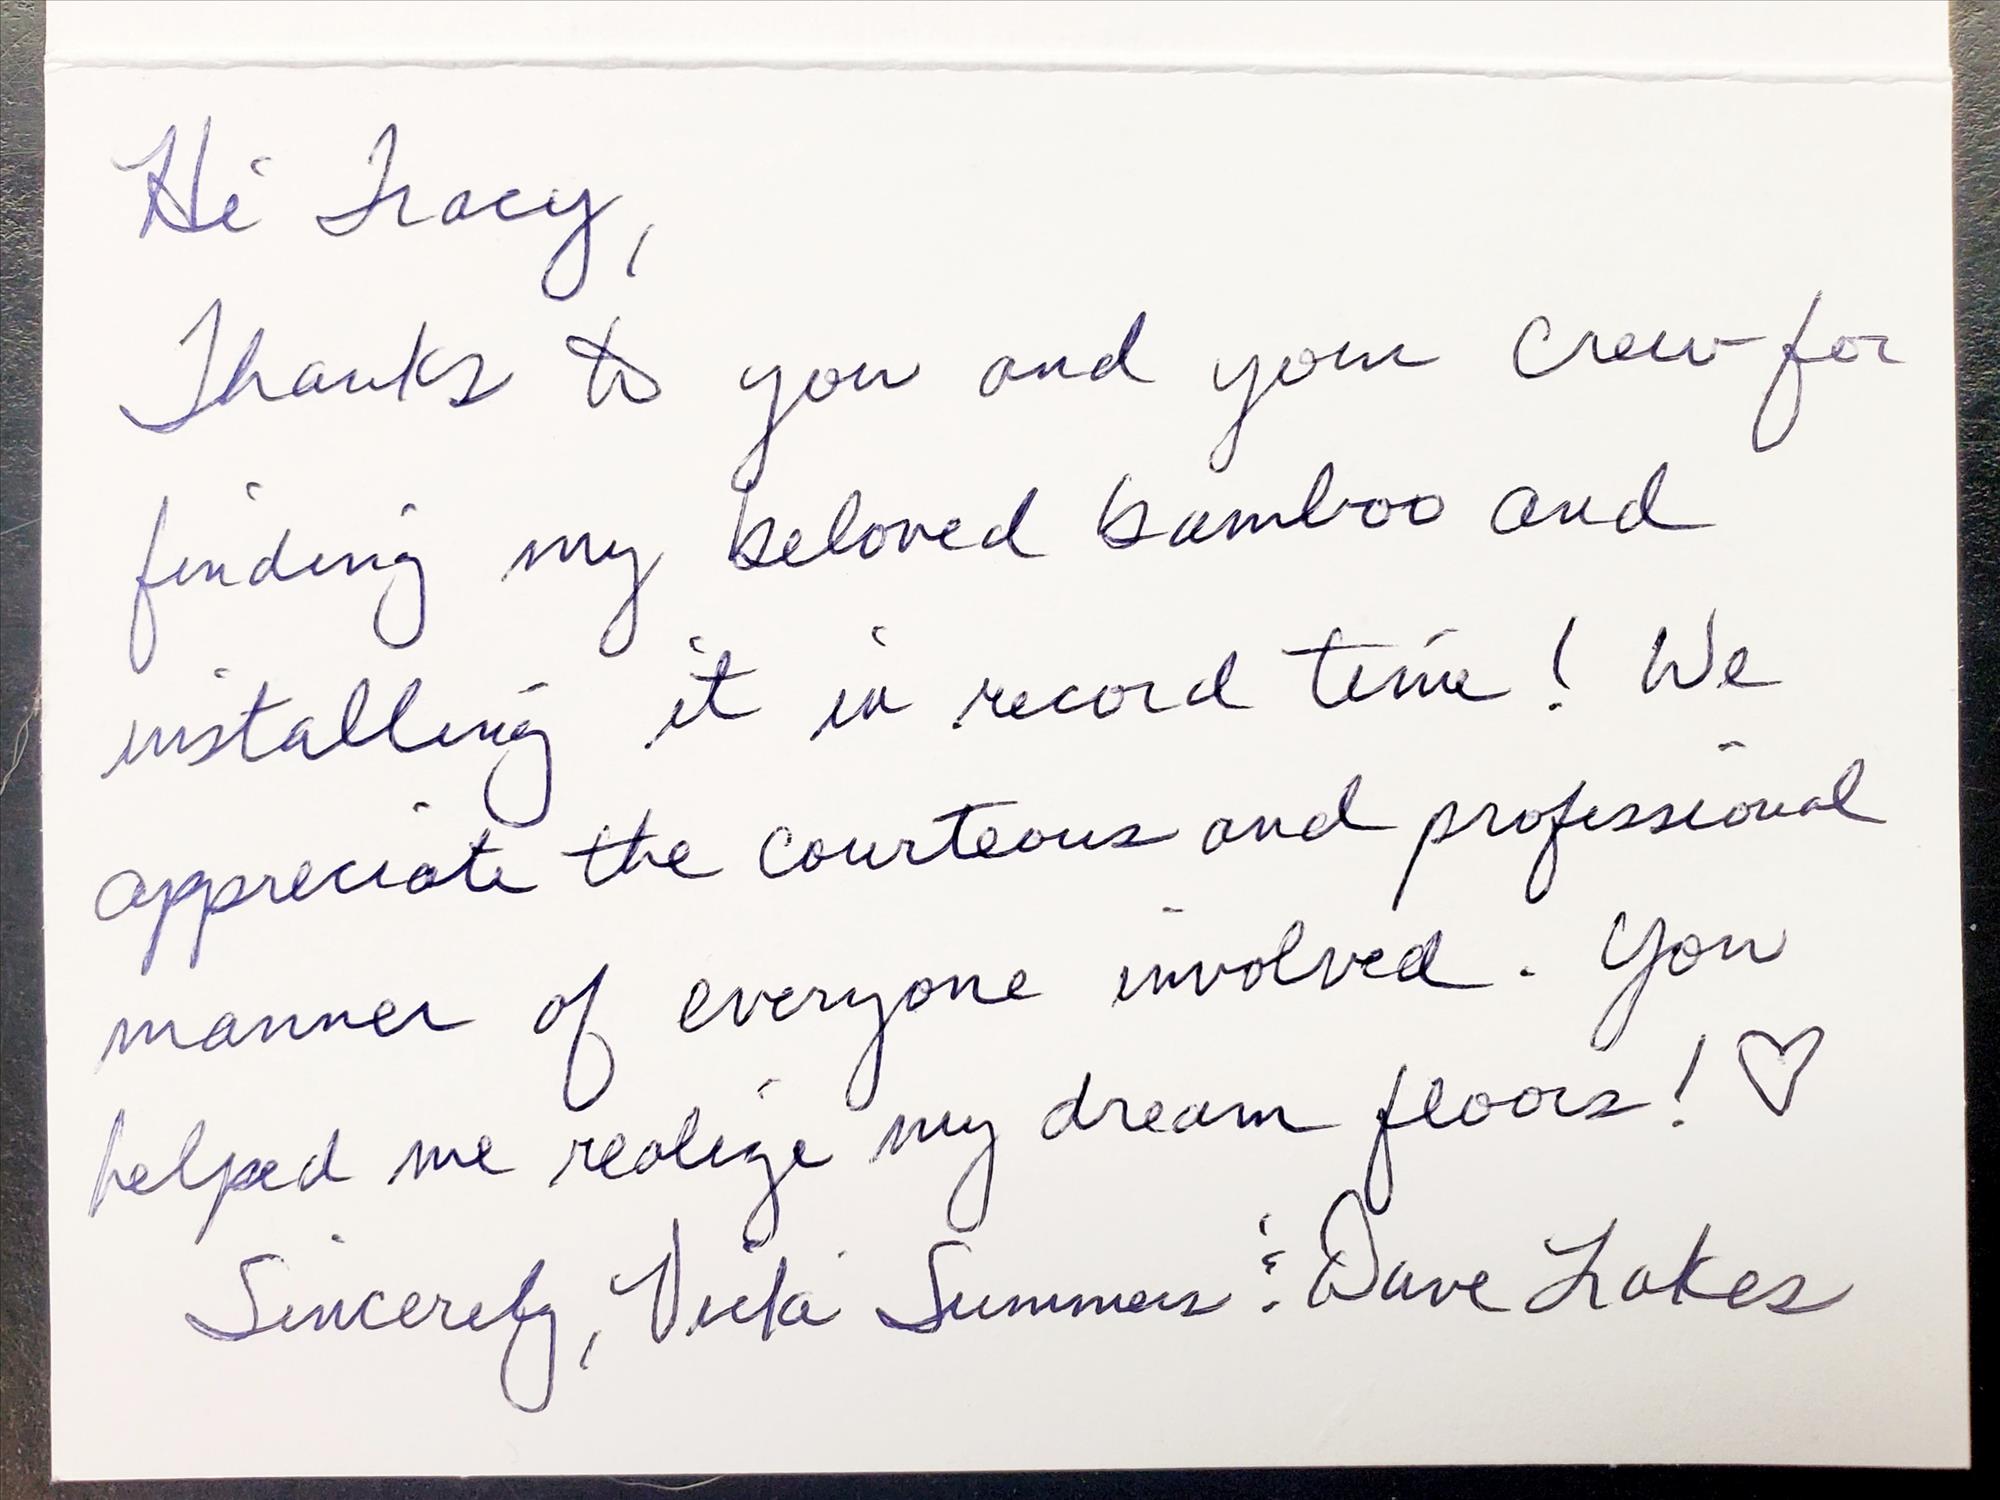 Hi Tracy,
Thanks to you and your crew for
finding my beloved bamboo and
installing it in record time! We
appreciate the courteous and professional
manner of everyone involved. You
helped me realize my dream floors! ♡
Sincerely, Vicki Summers & Dave Lakes